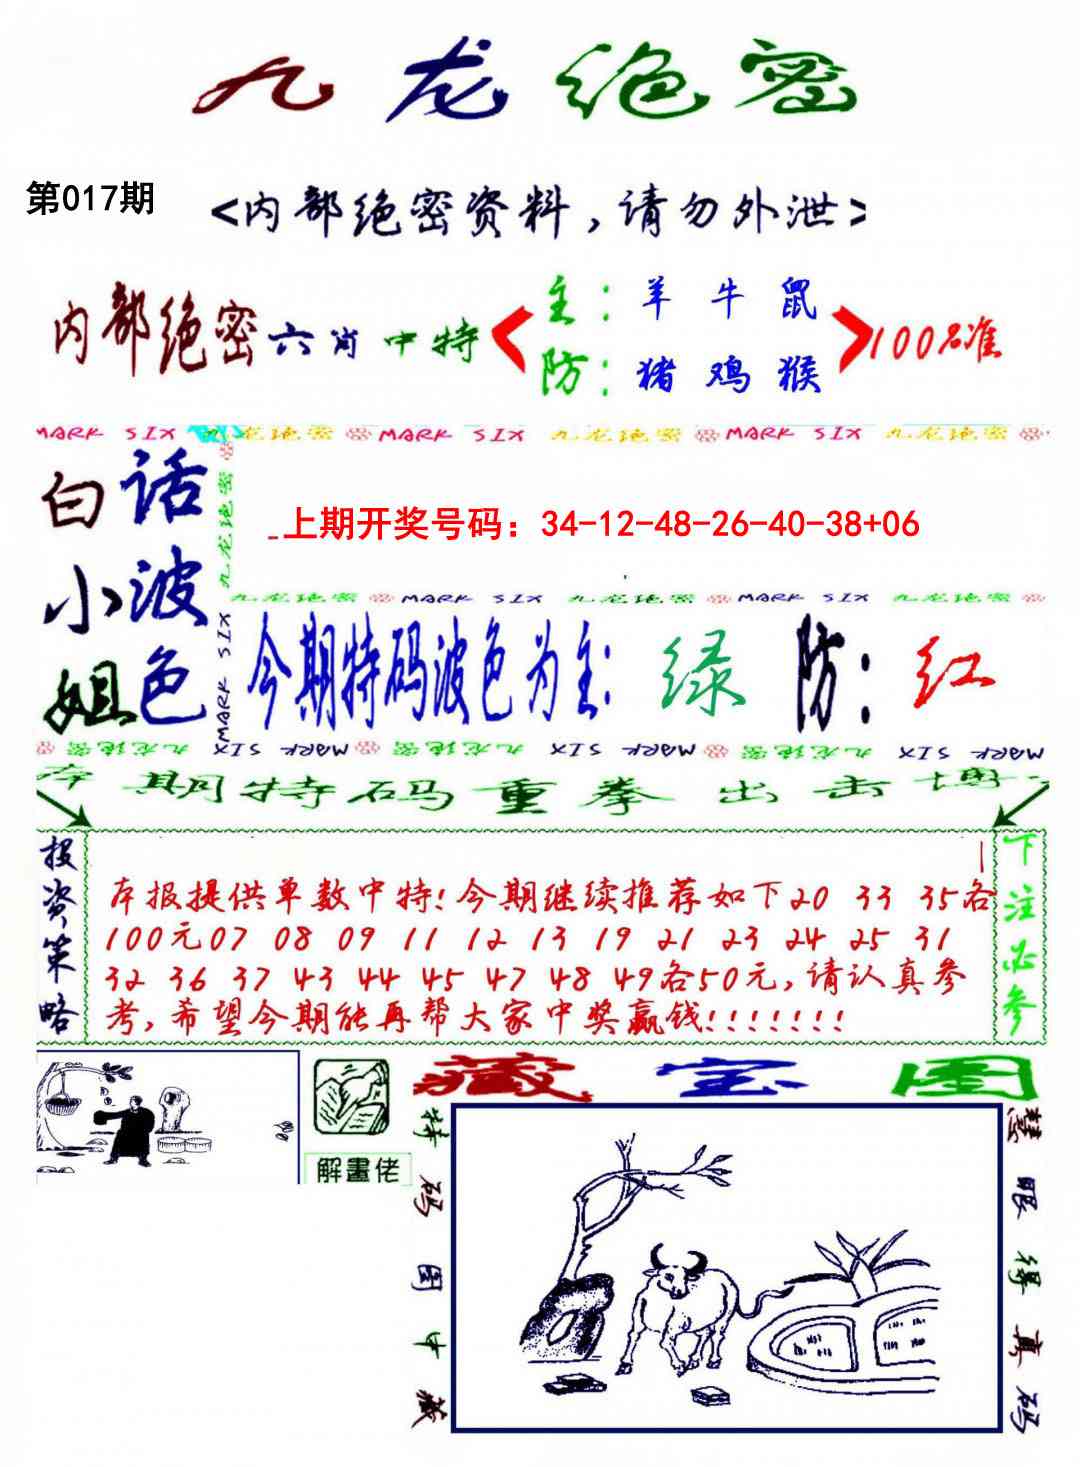 九龙绝密
第017期
<内部绝密资料,请勿外泄>
内部绝密六肖中特
主:羊 牛 鼠
防:猪 鸡 猴
100%准
MARK SIX 九龙绝密 MARK SIX 九龙绝密 MARK SIX 九龙绝密
白小姐
话波色
九龙绝密
MARK SIX
上期开奖号码:34-12-48-26-40-38+06
九龙绝密 MARK SIX 九龙绝密 MARK SIX 九龙绝密
今期特码波色为主:绿 防:红
九龙绝密 MARK SIX 九龙绝密 MARK SIX 九龙绝密 MARK SIX
本期特码重拳出击博
投资策略
本报提供单数中特!今期继续推荐如下20 33 35各
100元07 08 09 11 12 13 19 21 23 24 25 31
32 36 37 43 44 45 47 48 49各50元,请认真参
考,希望今期能再帮大家中奖赢钱!!!!!!!
下注必参
解畫佬
藏宝图
特码图中藏
慧眼得真码